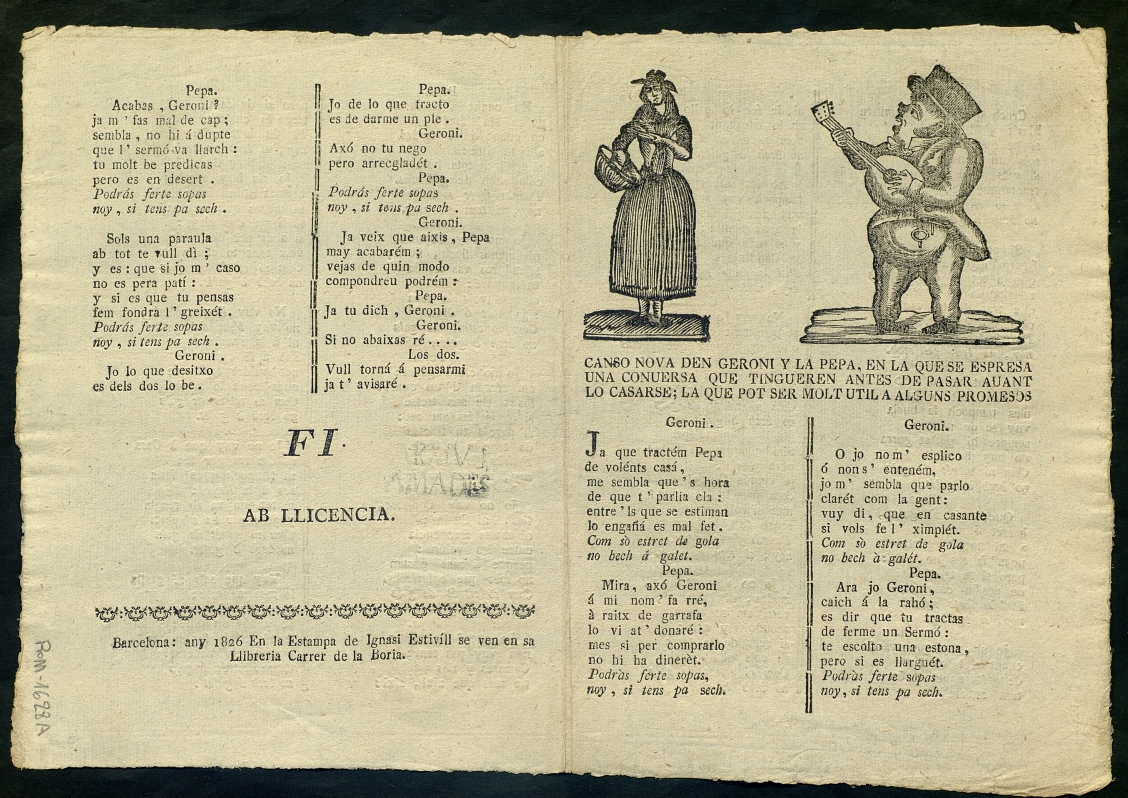 Pepa.
Acabas , Geroni ?
ja m ' fas mal de cap ;
sembla , no hi á dupte
que l ' sermó va llarch :
tu molt be predicas
pero es en desert .
Podrás ferte sopas
noy , si tens pa sech .
Sols una paraula
ab tot te vull di ;
y es : que si jo m ' caso
no es pera patí :
y si es que tu pensas
fem fondra l ' greixét .
Podrás ferte sopas
noy , si tens pa sech .
Geroni .
Jo lo que desitxo
es dels dos lo be .
Pepa.
Jo de lo que tracto
es de darme un ple .
Geroni.
Axó no tu nego
pero arrecgladét .
Pepa.
Podrás ferte sopas
noy , si tens pa sech .
Geroni.
Ja veix que aixis , Pepa
may acabarém ;
vejas de quin modo
compondreu podrém :
Pepa.
Ja tu dich , Geroni .
Geroni.
Si no abaixas ré . . . .
Los dos.
Vull torná á pensarmi
ja t ' avisaré .
FI.
AMADES
AB LLICENCIA.
Barcelona: any 1826 En la Estampa de Ignasi Estivíll se ven en sa
Llibreria Carrer de la Boria.
Rom-1628A
CANSO NOVA DEN GERONI Y LA PEPA, EN LA QUE SE ESPRESA
UNA CONUERSA QUE TINGUEREN ANTES DE PASAR AUANT
LO CASARSE; LA QUE POT SER MOLT UTIL A ALGUNS PROMESOS
Geroni .
Ja que tractém Pepa
de volénts casá ,
me sembla que ' s hora
de que t ' parlia cla :
entre ' ls que se estiman
lo engañá es mal fet .
Com so estret de gola
no bech á galet.
Pepa.
Mira, axó Geroni
á mi nom ' fa rré,
à raitx de garrafa
lo vi at ' donaré :
mes si per comprarlo
no hi ha dinerèt.
Podràs ferte sopas,
noy , si tens pa sech.
Geroni.
O jo no m ' esplico
ó nons ' enteném,
jo m ' sembla que parlo
clarét com la gent :
vuy di, que en casante
si vols fe l ' ximplét.
Com so estret de gola
no bech à galét.
Pepa.
Ara jo Geroni,
caich á la rahó ;
es dir que tu tractas
de ferme un Sermó :
te escolto una estona,
pero si es llarguét.
Podràs ferte sopas
noy, si tens pa sech.